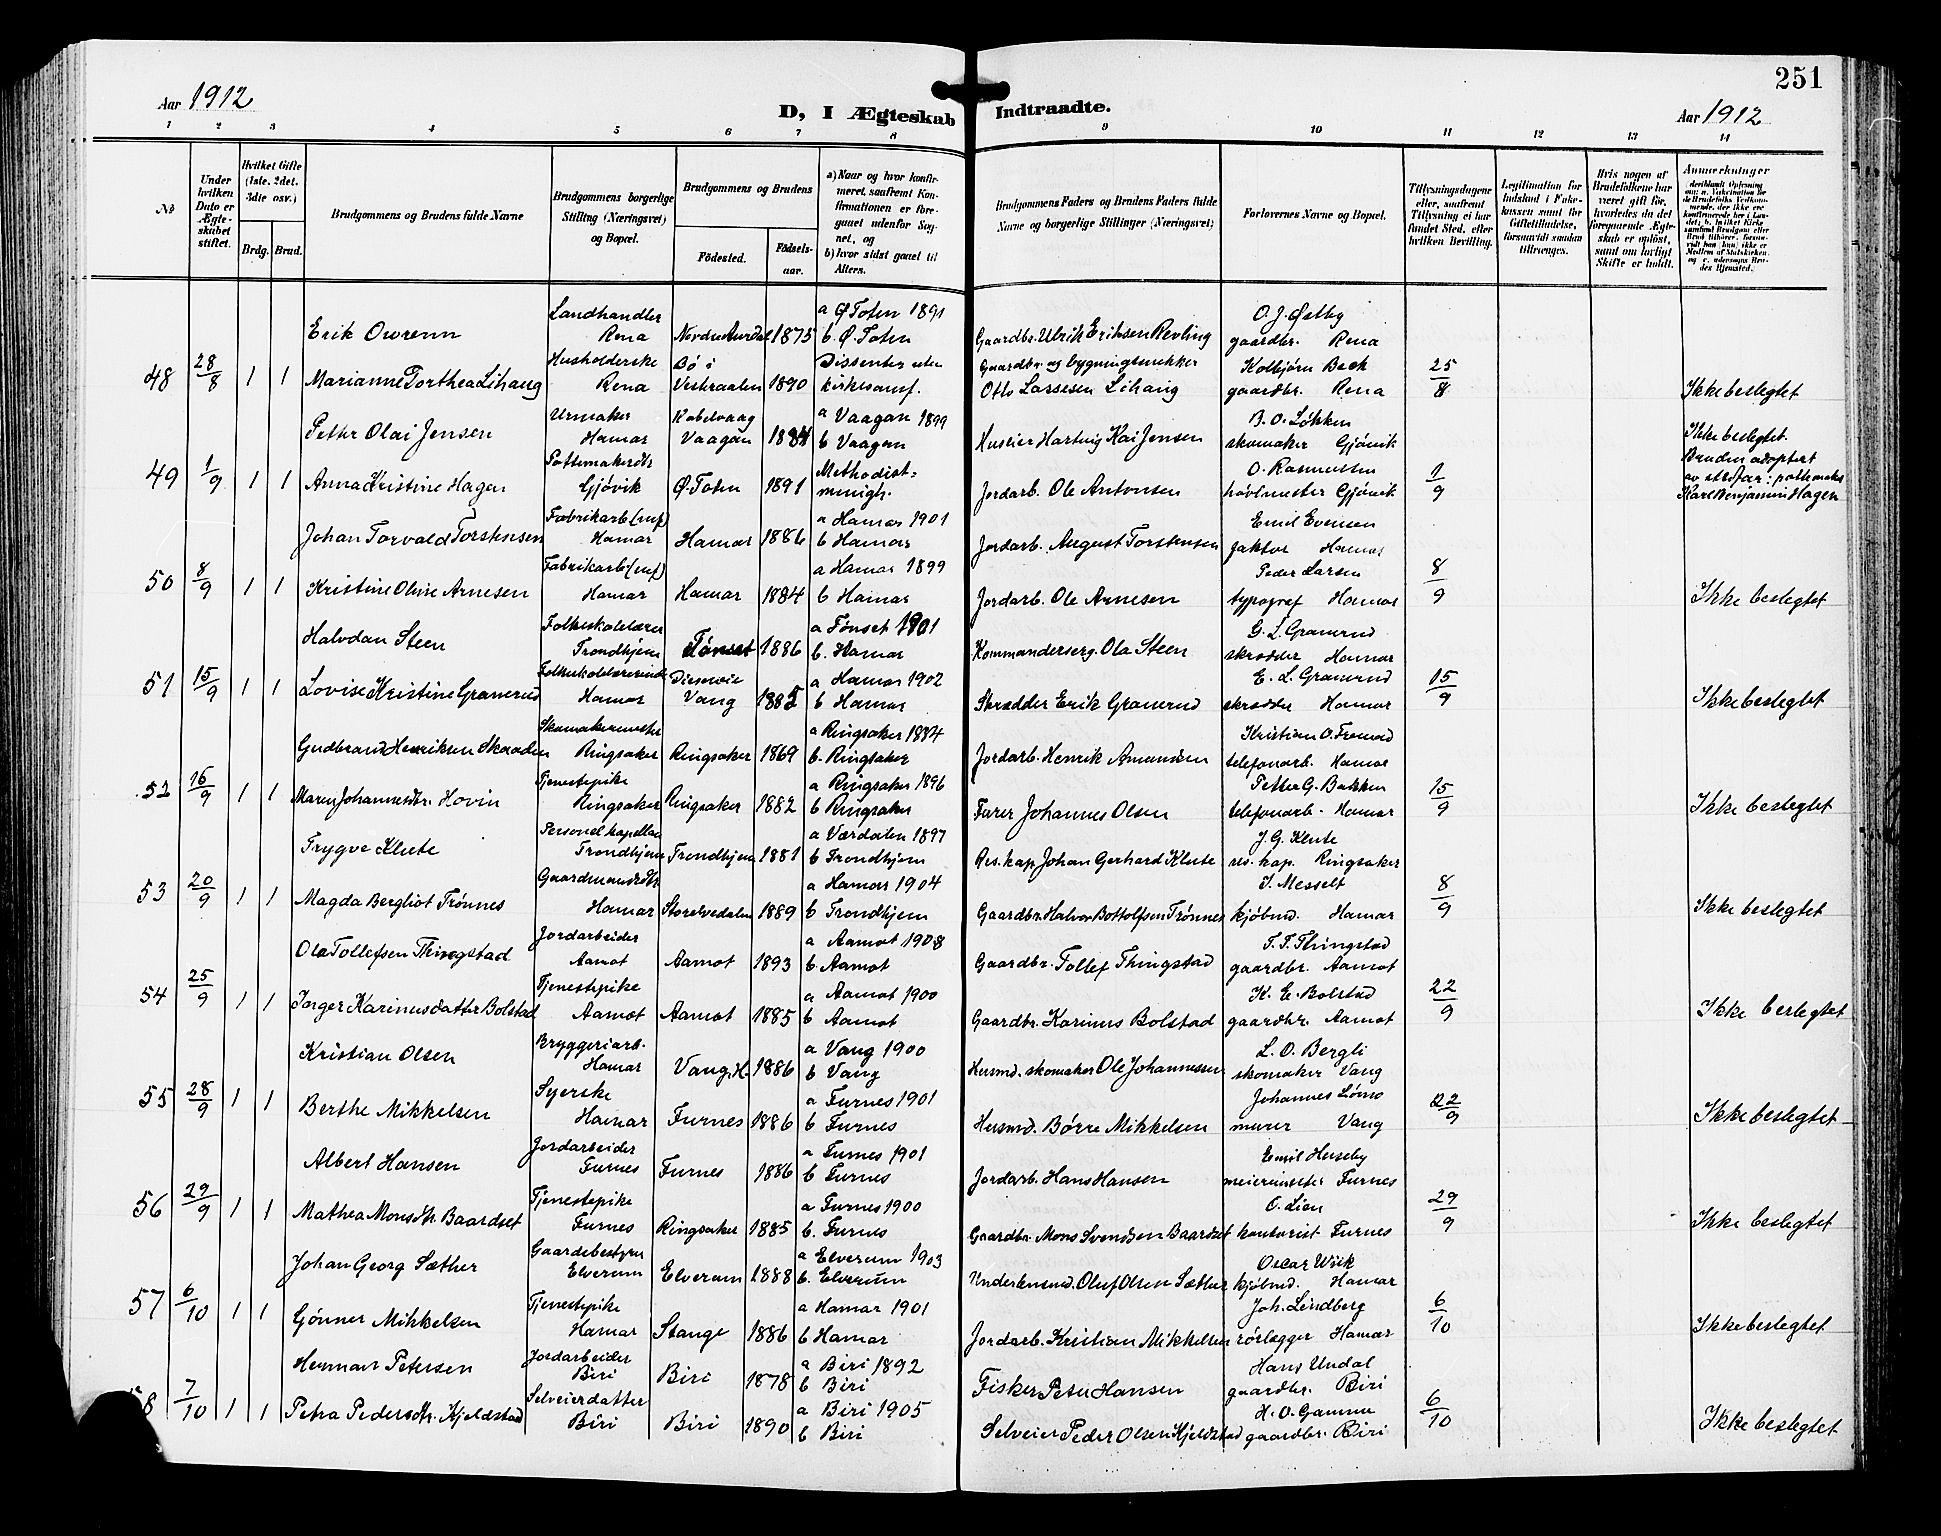 251
Aar 1912
D, I Ægteskab Indtraadte.
Aar 1912
1 2 3 4 5 6 7 8 9 10 11 12 13 14
No
Under hvilken Dato er Ægteskabet stiftet.
Hvilket Gifte (1ste, 2det, 3die osv.)
Brdg. Brud.
Brudgommens og Brudens fulde Navne
Brudgommens borgerlige Stilling (Næringsvei) og Bopæl.
Brudgommens og Brudens
Fødested.
Fødselsaar.
a) Naar og hvor konfirmeret, saafremt Konfirmationen er foregaaet udenfor Sognet, og
b) hvor sidst gaaet til Alters.
Brudgommens Faders og Brudens Faders fulde Navne og borgerlige Stillinger (Næringsvei)
Forlovernes Navne og Bopæl.
Tillysningsdagene eller, saafremt Tillysning ei har fundet Sted, efter hvilken Bevilling.
Legitimation for Indskud i Enkekassen samt for Giftetilladelse, forsaavidt saadan tiltrænges.
Hvis nogen af Brudefolkene har været gift før, hvorledes da det foregaaende Ægteskab er opløst, samt om lovligt Skifte er holdt.
Anmærkninger
Erik Owrenn Landhandler Rena Nordre Aurdal 1875 a Ø. Toten 1891 b. Ø. Toten Gaardbr. Ulrik Eriksen Revling O. J. Østby gaardbr. Rena
48 28/8 1 1 Marianne Torthea Lihaug Husholderske Rena Bø i Vesteraalen 1890 Dissenter uten kirkesamf. Gaardbr. og bygningssnekker Otto Lassesen Lihaug Kolbjørn Beck gaardbr. Rena 25/8 Ikke beslegtet
Petter Olai Jensen Urmaker Hamar Kabelvaag Vaagan 1884 a Vaagan 1899 b Vaagan Husier Hartvig Kai Jensen B. O. Løkken skomaker Gjövik Ikke beslegtet.
49 1/9 1 1 Anna Kristine Hagen Pottemakerdtr. Gjövik Ø. Toten 1891 Methodistmenigh. Jordarb. Ole Antonsen O. Rasmussen hövlmester Gjövik 1/9 Bruden adoptert av stedfar: pottemaker Karl Benjamin Hagen
Johan Torvald Torstensen Fabrikarb. Hamar Hamar 1886 a Hamar 1901 b Hamar Jordarb. August Torstensen Emil Evensen faktor Hamar
50 8/9 1 1 Kristine Oline Arnesen Fabrikarb. Hamar Hamar 1884 a Hamar 1899 b Hamar Jordarb. Ole Arnesen Peder Larsen typograf Hamar 8/9 Ikke beslegtet
Halvdan Steen Folkeskolelærer Trondhjem Tönset 1886 a Tönset 1901 b. Hamar Kommanderserg. Ola Steen G. L. Granerud skrædder Hamar
51 15/9 1 1 Lovise Kristine Granerud Folkeskolelærerinde Hamar Disenvie Vang 1885 a Hamar 1902 b Hamar Skrædder Erik Granerud E. L. Granerud skrædder Hamar 15/9 Ikke beslegtet
Gudbrand Henriksen Skaaden Skomakermester Ringsaker Ringsaker 1869 a Ringsaker 1884 b. Ringsaker Jordarb. Henrik Amundsen Kristian O. telefonarb. Hamar
52 16/9 1 1 Maren Johannesdtr. Hovin Tjenestepike Ringsaker Ringsaker 1882 a Ringsaker 1896 b Ringsaker Furer Johannes Olsen Petter G. Bakken telefonarb. Hamar 15/9 Ikke beslegtet
Trygve Klüte Personel kapellan Trondhjem Trondhjem 1881 a Værdalen 1897 b Trondhjem Res. kap Johan Gerhard Klüte J. G. Klüte res. kap. Ringsaker
53 20/9 1 1 Magda Bergliot Trönnes Gaardmandsdtr. Hamar Storelvedalen 1889 a Hamar 1904 b Trondhjem Gaardbr. Halvor Bottolfsen Trönnes J. Messelt kjöbmd. Hamar 8/9 Ikke beslegtet
Ola Tollefsen Thingstad Jordarbeider Aamot Aamot 1893 a Aamot 1908 b. Aamot Gaardbr. Tollef Thingstad T. T. Thingstad gaardbr. Aamot
54 25/9 1 1 Inger Karinusdatter Bolstad Tjenestepike Aamot Aamot 1885 a Aamot 1900 b Aamot Gaardbr. Karinus Bolstad K. E. Bolstad gaardbr. Aamot 22/9 Ikke beslegtet
Kristian Olsen Bryggeriarb. Hamar Vang, H. 1886 a Vang 1900 b Vang Husmd. skomaker Ole Johannessen L. O. Bergli skomaker Vang
55 28/9 1 1 Berthe Mikkelsen Syerske Hamar Furnes 1886 a Furnes 1901 b Furnes Husmd. Børre Mikkelsen Johannes murer Vang 22/9 Ikke beslegtet
Albert Hansen Jordarbeider Furnes Furnes 1886 a Furnes 1901 b Furnes Jordarb. Hans Hansen Emil Huseby meiermester Furnes
56 29/9 1 1 Mathea Monsdtr. Baardset Tjenestepike Furnes Ringsaker 1885 a Furnes 1900 b. Furnes Gaardbr. Mons Svendsen Baardset O. Lien kontorist Furnes 29/9 Ikke beslegtet
Johan Georg Sæther Gaardsbestyrer Elverum Elverum 1888 a Elverum 1903 b. Elverum Underlensmd. Oluf Olsen Sæther Oscar Wiik kjöbmd. Hamar
57 6/10 1 1 Gönner Mikkelsen Tjenestepike Hamar Stange 1886 a Hamar 1901 b Hamar Jordarb. Kristian Mikkelsen Joh. Lindberg rörlægger Hamar 6/10 Ikke beslegtet
Herman Petersen Jordarbeider Biri Biri 1878 a Biri 1892 b Biri Fisker Peter Hansen Hans Undal gaardbr. Biri
58 7/10 1 1 Petra Pedersdtr. Kjeldstad Selveierdatter Biri Biri 1890 a Biri 1905 b Biri Selveier Peder Olsen Kjeldstad H. O. Gamme gaardbr. Biri 6/10 Ikke beslegtet